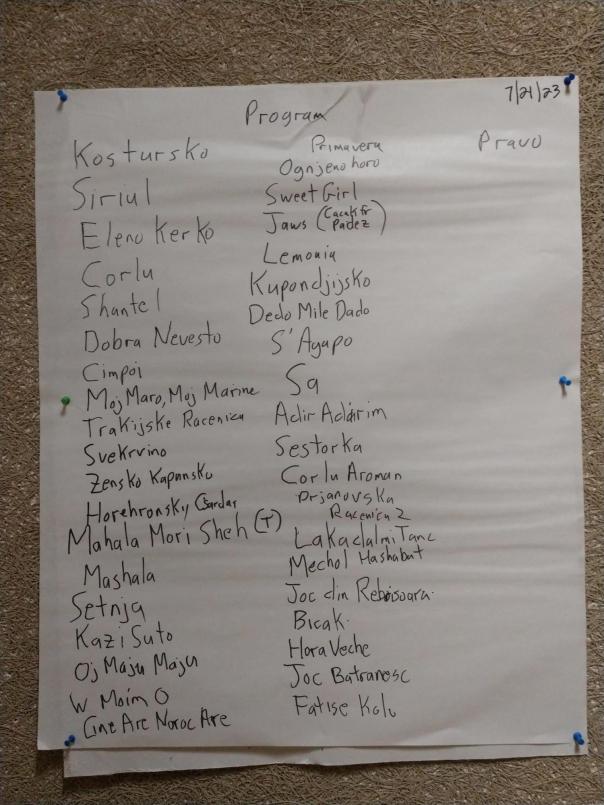 7/21/23
Program
Kostursko
Siriul
Eleno Kerko
Corlu
Shantel
Dobra Nevesto
Cimpoi
Moj Maro, Moj Marine
Trakijske Racenica
Svekrvino
Zensko Kapansko
Horehronsky Csardas
Mahala Mori Sheh (T)
Mashala
Setnja
Kazi Suto
Oj Maju Maju
W Moim O
Cine Are Noroc Are
Primavera
Ognjeno horo
Sweet Girl
Jaws (Cacak fr
Padez)
Lemonia
Kupondjijsko
Dedo Mile Dado
S'Agapo
Sa
Adir Adirim
Sestorka
Corlu Aroman
Drjanovska
Racenica 2
Lakadalmi Tanc
Mechol Hashabat
Joc din Rebrisoara
Bicak
Hora Veche
Joc Batranesc
Fatise Kolo
Pravo